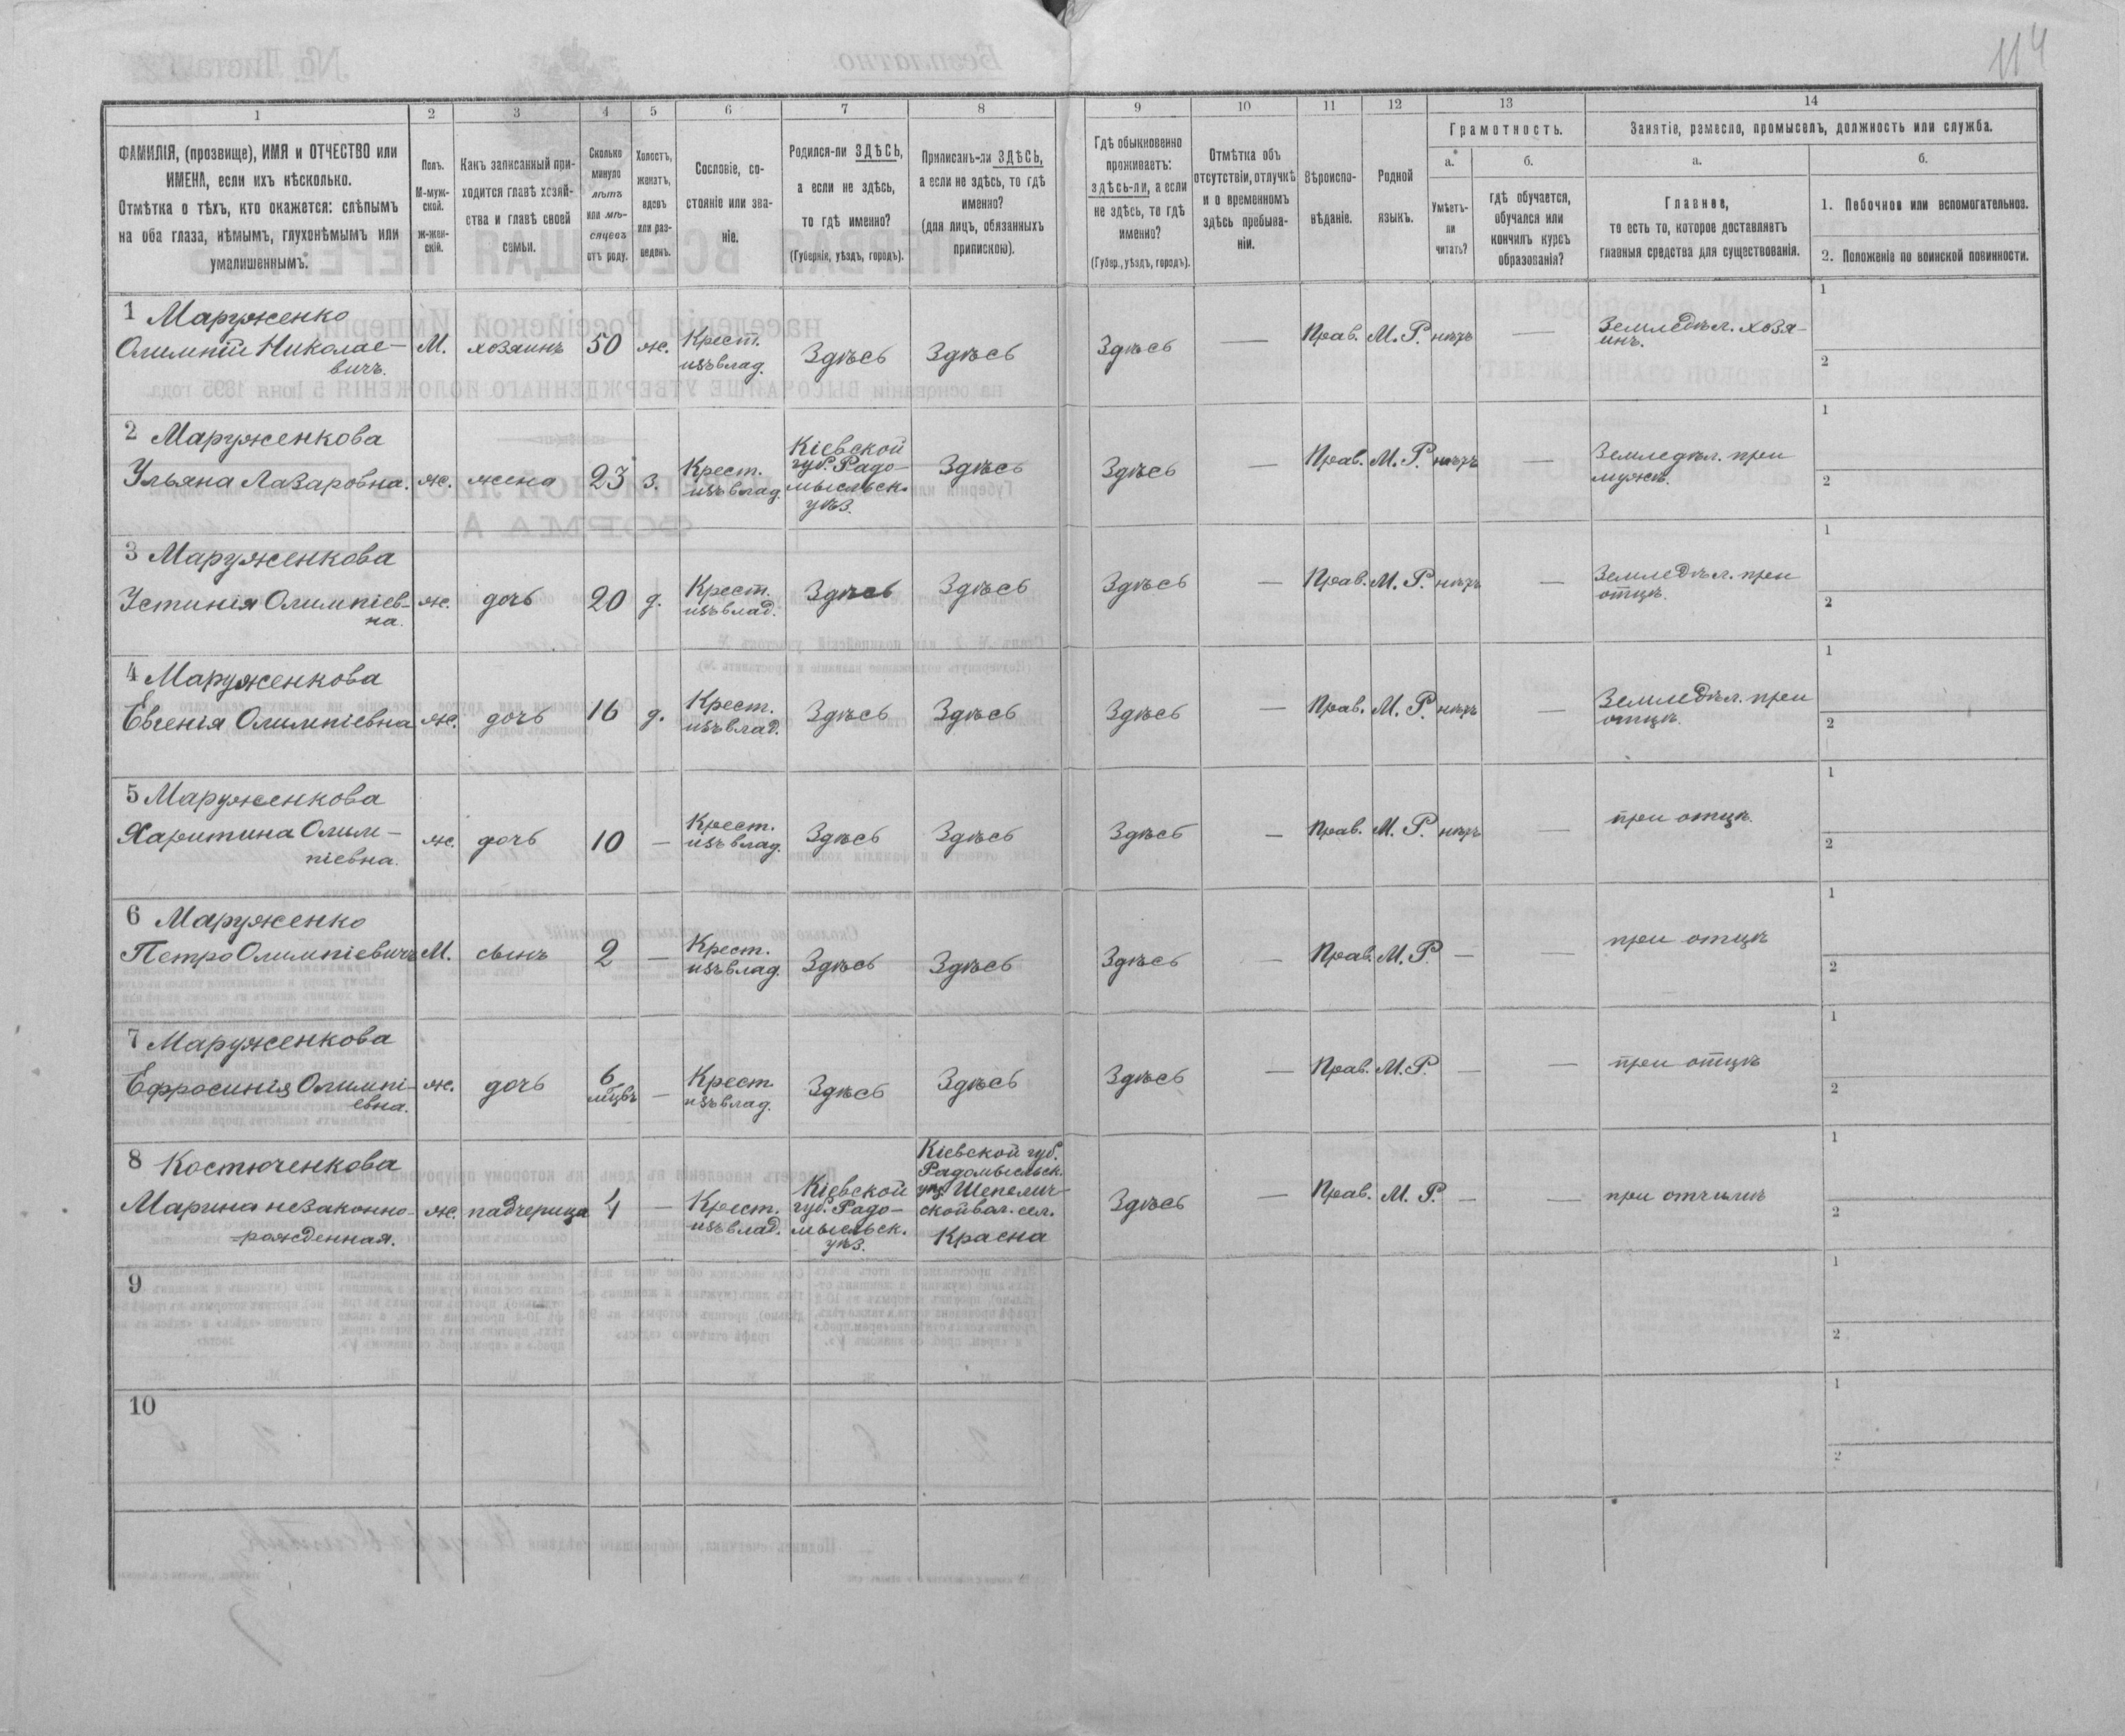 114
1 2 3 4 5 6 7 8 9 10 11 12 13 14
ФАМИЛІЯ, (прозвище), ИМЯ и ОТЧЕСТВО или
ИМЕНА, если ихъ нѣсколько.
Отмѣтка о тѣхъ, кто окажется: слѣпымъ
на оба глаза, нѣмымъ, глухонѣмымъ или
умалишеннымъ.
Полъ.
М-муж-
ской.
Ж-жен-
скій.
Какъ записанный при-
ходится главѣ хозяй-
ства и главѣ своей
семьи.
Сколько
минуло
лѣтъ
или мѣ-
сяцевъ
отъ роду.
Холостъ,
женатъ,
вдовъ
или раз-
веденъ.
Сословіе, со-
стояніе или зва-
ніе.
Родился-ли ЗДѢСЬ,
а если не здѣсь,
то гдѣ именно?
(Губернія, уѣздъ, городъ).
Приписанъ-ли ЗДѢСЬ,
а если не здѣсь, то гдѣ
именно?
(для лицъ, обязанныхъ
припискою).
Гдѣ обыкновенно
проживаетъ:
здѣсь-ли, а если
не здѣсь, то гдѣ
именно?
(Губер., уѣздъ, городъ).
Отмѣтка объ
отсутствіи, отлучкѣ
и о временномъ
здѣсь пребыва-
ніи.
Вѣроиспо-
вѣданіе.
Родной
языкъ.
Грамотность.
а.
Умѣетъ-
ли
читать?
б.
гдѣ обучается,
обучался или
кончилъ курсъ
образованія?
Занятіе, ремесло, промыселъ, должность или служба.
а.
Главное,
то есть то, которое доставляетъ
главныя средства для существованія.
б.
1. Побочное или вспомогательное.
2. Положеніе по воинской повинности.
1 Маруженко
Олимпій Николае-
вичъ.
М. хозяинъ 50 ж.
Крест.
изъ влад.
Здѣсь Здѣсь Здѣсь — Прав. М. Р. нѣтъ —
Земледѣл. хозя-
инъ.
1
2
2 Маруженкова
Ульяна Лазаровна.
ж. жена 23 з.
Крест.
изъ влад.
Кіевской
губ. Радо-
мысльск.
уѣз.
Здѣсь Здѣсь — Прав. М. Р. нѣтъ —
Земледѣл. при
мужѣ.
1
2
3 Маруженкова
Устинія Олимпіев-
на.
ж. дочь 20 д.
Крест.
изъ влад.
Здѣсь Здѣсь Здѣсь — Прав. М. Р. нѣтъ —
Земледѣл. при
отцѣ.
1
2
4 Маруженкова
Евгенія Олимпіевна
ж. дочь 16 д.
Крест.
изъ влад.
Здѣсь Здѣсь Здѣсь — Прав. М. Р. нѣтъ —
Земледѣл. при
отцѣ.
1
2
5 Маруженкова
Харитина Олим-
піевна.
ж. дочь 10 —
Крест.
изъ влад.
Здѣсь Здѣсь Здѣсь — Прав. М. Р. нѣтъ —
при отцѣ.
1
2
6 Маруженко
Петро Олимпіевичъ
М. сынъ 2 —
Крест.
изъ влад.
Здѣсь Здѣсь Здѣсь — Прав. М. Р. — —
при отцѣ
1
2
7 Маруженкова
Ефросинія Олимпі-
евна.
ж. дочь
6
мцвъ
—
Крест.
изъ влад.
Здѣсь Здѣсь Здѣсь — Прав. М. Р. — —
при отцѣ
1
2
8 Костюченкова
Марина незаконно-
рожденная.
ж. падчерица 4 —
Крест.
изъ влад.
Кіевской
губ. Радо-
мысльск.
уѣз.
Кіевской губ.
Радомысльск.
уѣз. Шепелич-
ской вол. сел.
Красна
Здѣсь — Прав. М. Р. — —
при отчимѣ
1
2
9
1
2
10
1
2